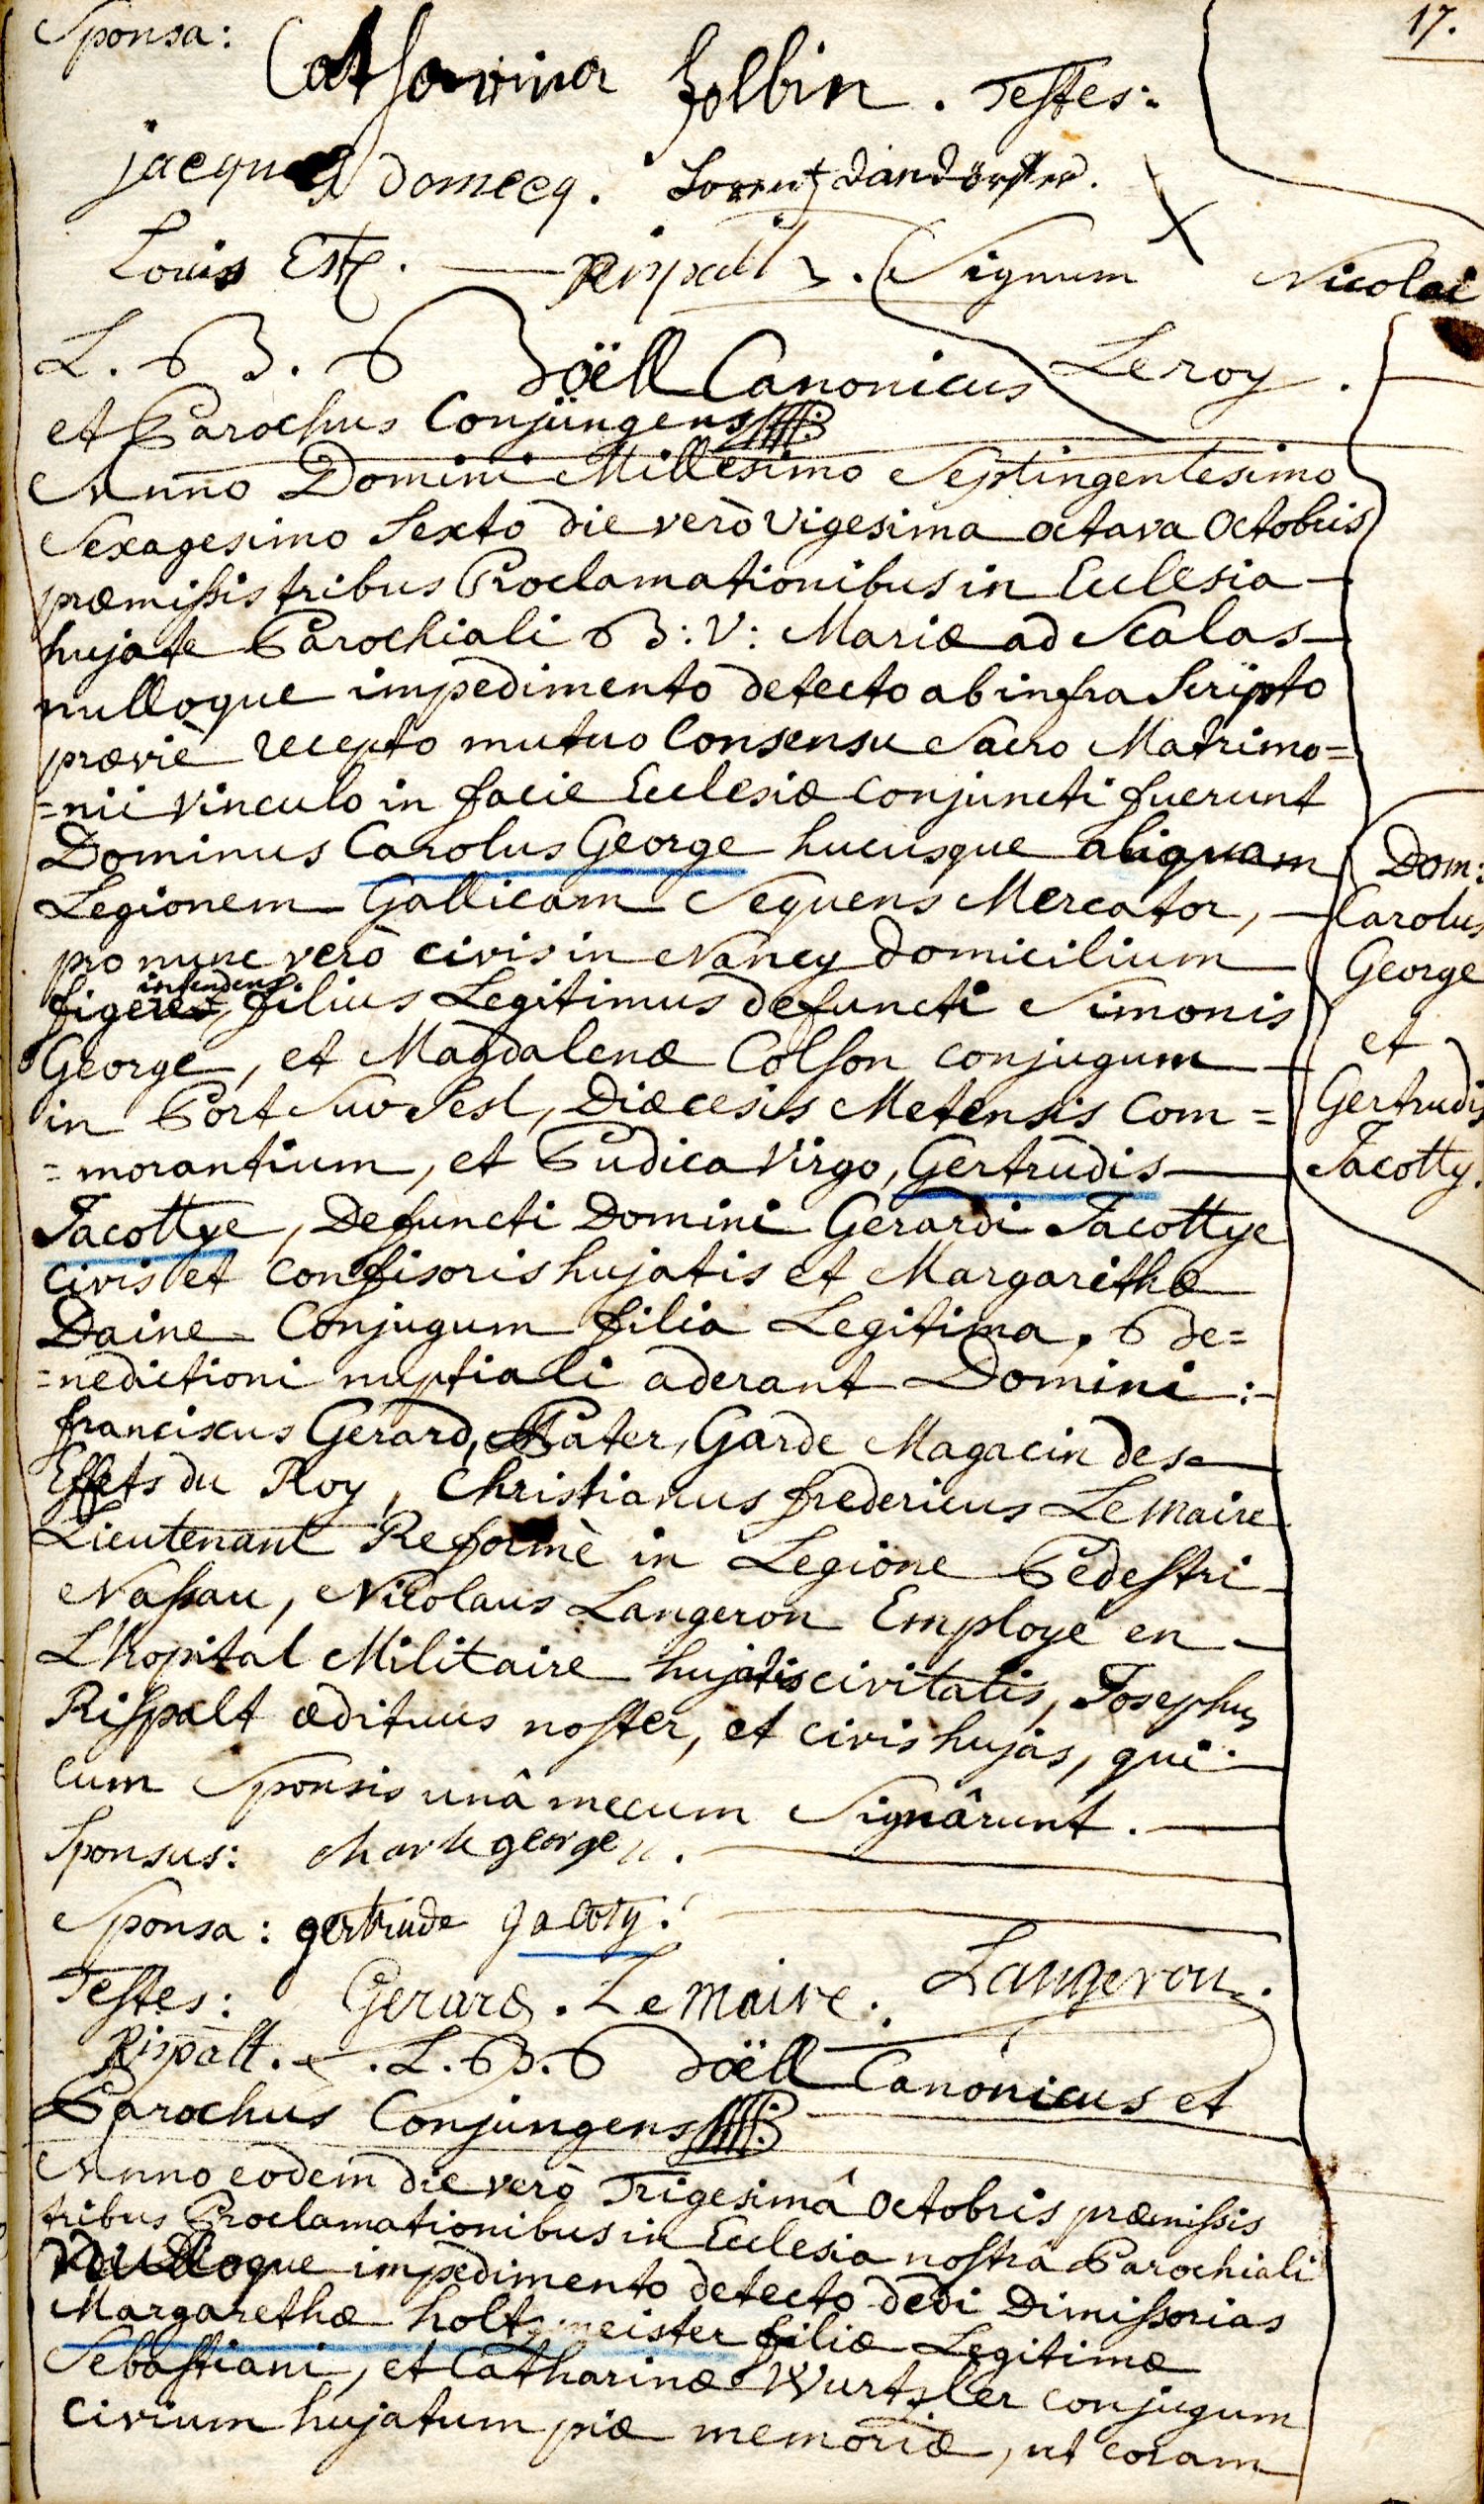 17.
Sponsa:
Catharina holbin. Testes:
jacques domecq. Lorentz dandörffer.
Louis Est. Rispalt. Signum X Nicolai
L. B. B doëll Canonicus Leroy.
et Parochus Conjüngens
Anno Domini Millesimo Septingentesimo
Sexagesimo Sexto die verò vigesima octava Octobris
præmissis tribus Proclamationibus in Ecclesia
hujate Parochiali B: V: Mariæ ad Scalas
nulloque impedimento detecto ab infra Scripto
præviè recepto mutuo Consensu Sacro Matrimo=
=nii vinculo in facie Ecclesiæ conjuncti fuerunt
Dominus Carolus George hucusque aliquam
Legionem Gallicam Sequens Mercator,
pro nunc verò civis in Nancy domicilium
figere intendens, filius Legitimus defuncti Simonis
George, et Magdalenæ Colson conjugum
in Port Suo Sesl, Diæcesis Metensis Com=
=morantium, et Pudica Virgo, Gertrudis
Jacottye, Defuncti Domini Gerardi Jacottye
civis et confisoris hujatis et Margarithæ
Daine Conjugum filia Legitima, Be=
=nedictioni nuptiali aderant Domini:
franciscus Gerard, Pater, Garde Magacin des
Effets du Roy, Christianus fredericus Lemaire
Lieutenant Reformè in Legione Pedestri
Nassau, Nicolaus Langeron Employe en
L'hopital Militaire hujatis civitatis, Josephus
Rispalt ædituus noster, et civis hujas, qui
cum Sponsis unâ mecum Signârunt.
Sponsus: Charle george
Sponsa: gertrude Jacoty.
Testes: Gerard. Le Maire. Langeron.
Rispalt. L. B. B doëll Canonicus et
Parochus Conjungens
Dom:
Carolus
George
et
Gertrudis
Jacotty.
Anno eodem die verò Trigesimâ Octobris præmissis
tribus Proclamationibus in Ecclesia nostra Parochiali
nulloque impedimento detecto dedi Dimissorias
Margarethæ holtzmeister filiæ Legitimæ
Sebastiani, et Catharinæ Wurtzler conjugum
civium hujatum piæ memoriæ, ut coram